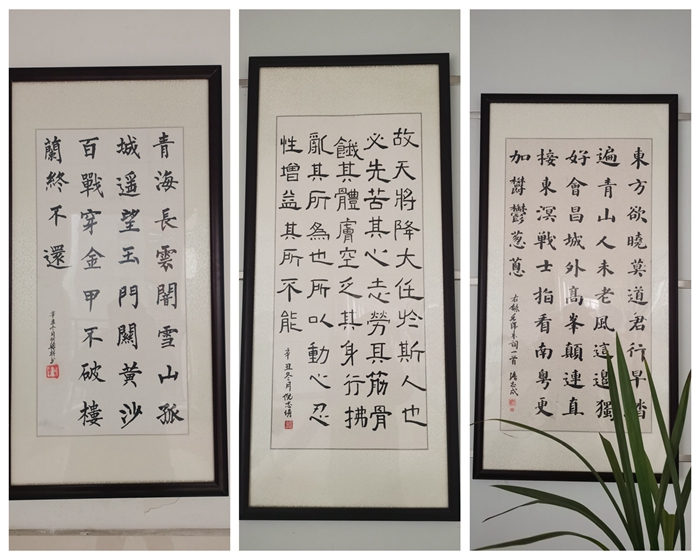 青海長雲闇雪山孤
城遥望玉門關黄沙
百戰穿金甲不破樓
蘭終不還
辛丑冬月
故天將降大任於斯人也
必先苦其心志勞其筋骨
餓其體膚空乏其身行拂
亂其所為也所以動心忍
性增益其所不能
辛丑冬月倪志
東方欲曉莫道君行早踏
遍青山人未老風這邊獨
好會昌城外高峯顛連直
接東溟戰士指看南粤更
加欝鬱葱蔥
右録毛澤东词一首 潘志成